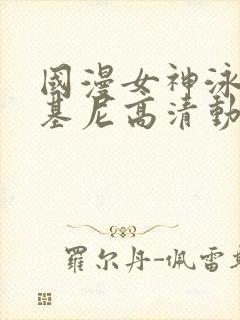 國漫女神泳
基尼高清動
羅尔丹-佩雷